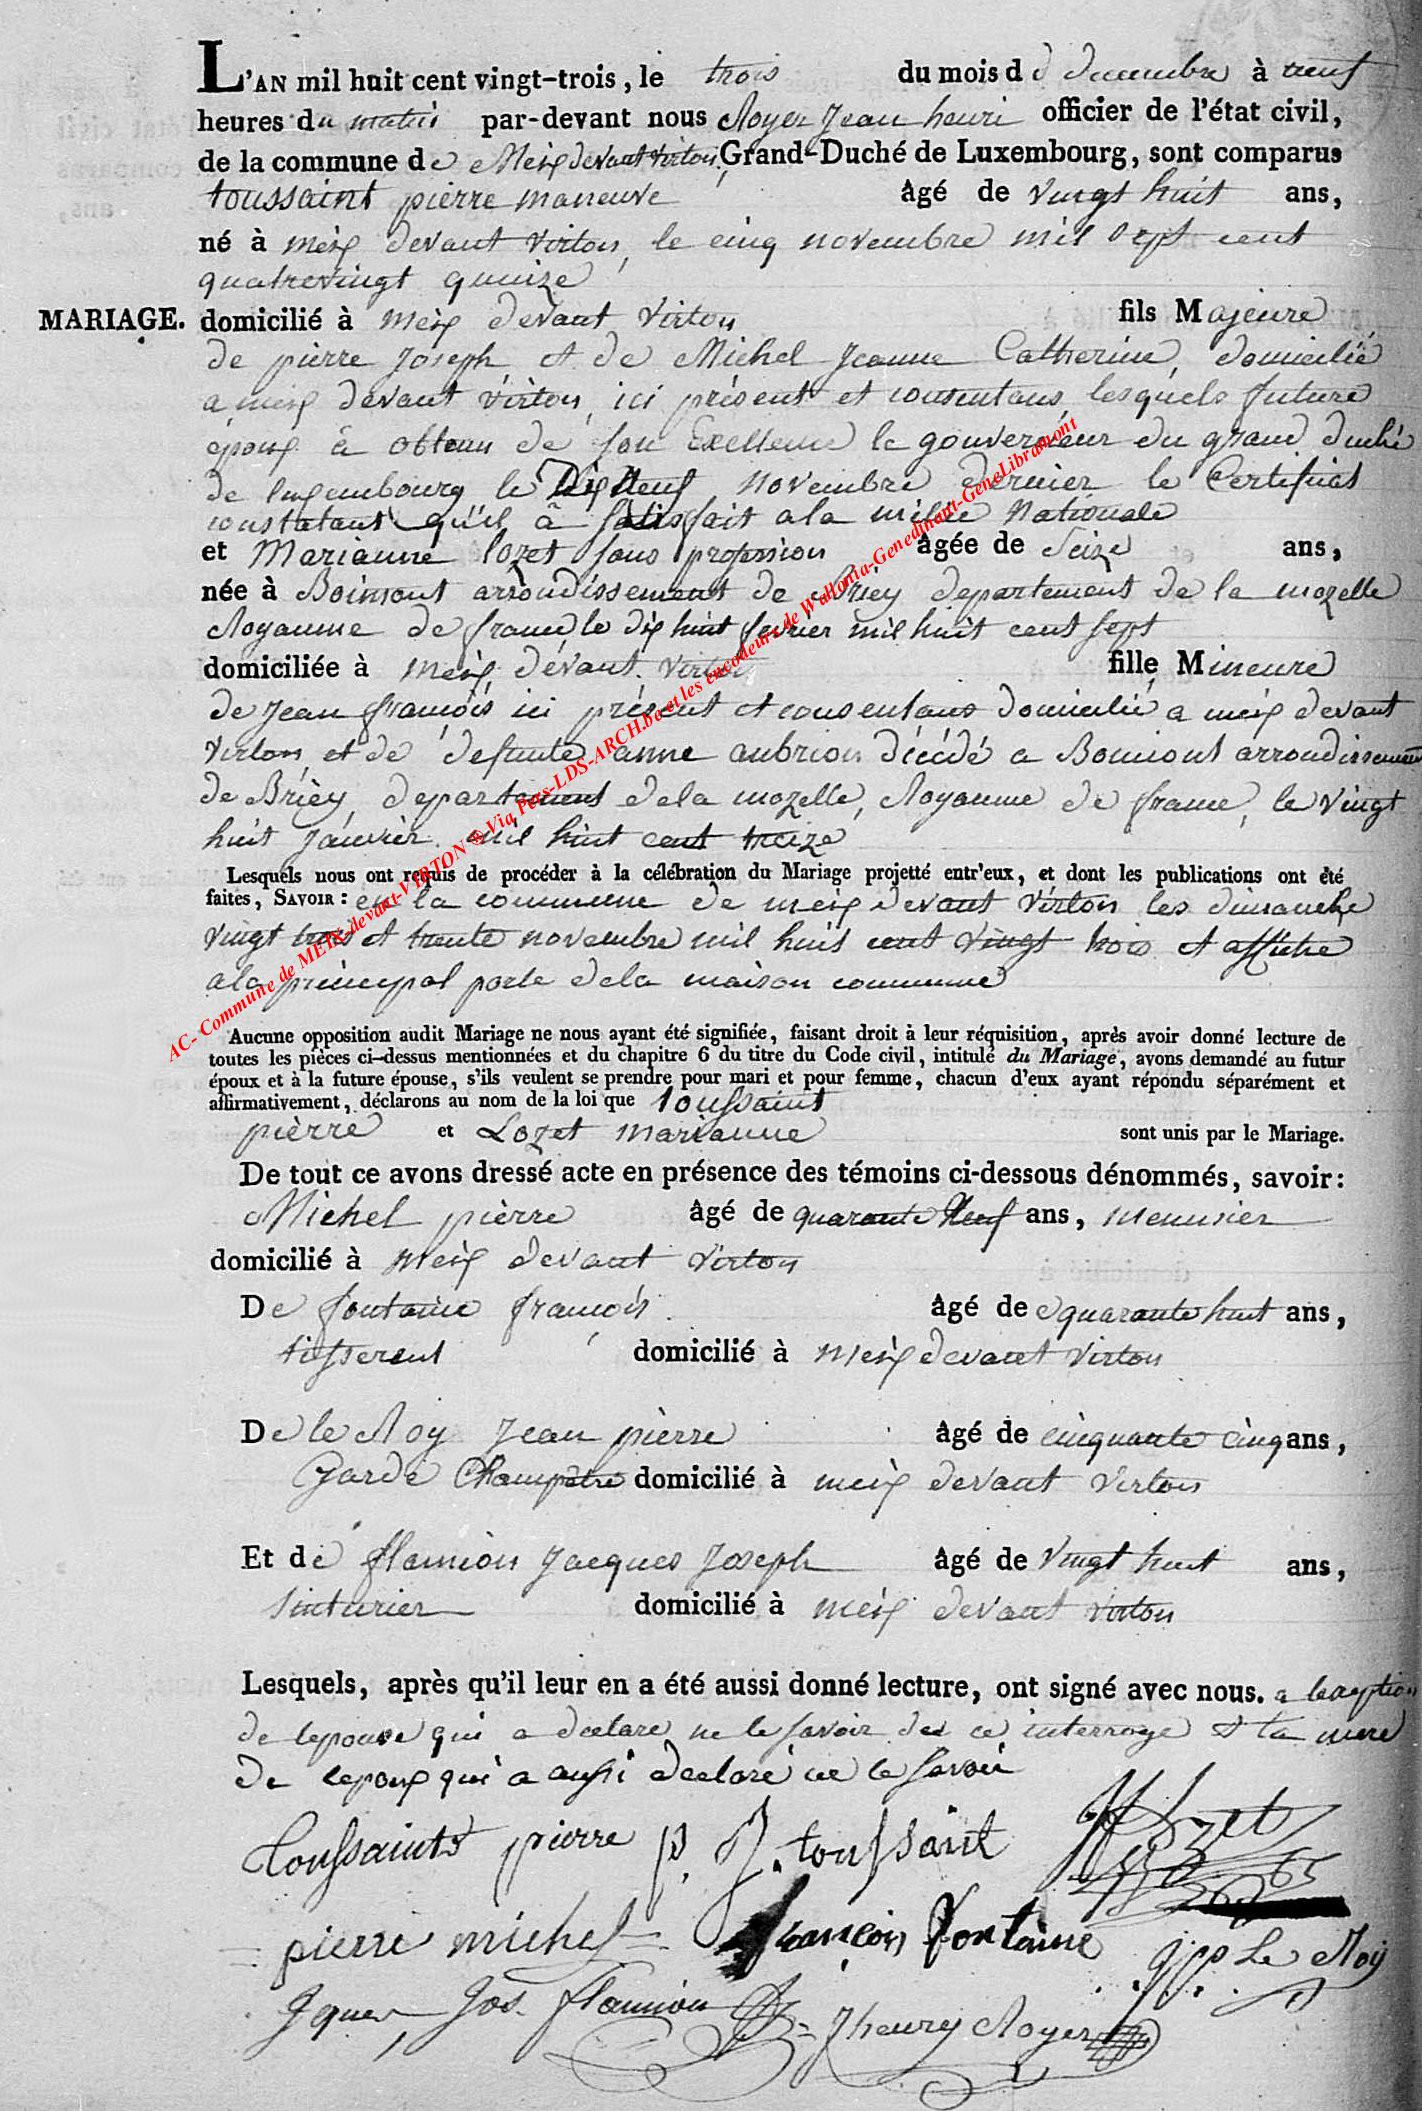 L'AN mil huit cent vingt-trois, le trois du mois d d decembre à neuf
heures du matin par-devant nous Royer Jean henri officier de l'état civil,
de la commune de Meix devant virton, Grand-Duché de Luxembourg, sont comparus
toussaint pierre maneuve âgé de vingt huit ans,
né à meix devant virton, le cinq novembre mil sept cent
quatrevingt quinze
MARIAGE. domicilié à meix devant virton fils Majeure
de pierre Joseph et de Michel Jeanne Catherine, domicilié
a meix devant virton, ici présent et consentans lesquels future
époux à obtenu de son Exellence le gouverneur du grand duché
de luxembourg le Dix Neuf novembre dernier le Certificat
constatant qu'il à satisfait a la milice Nationale
et Marianne lozet sans profession âgée de Seize ans,
née à Boimont arrondissement de Briey departement de la mozelle
Royaume de france le dix huit fevrier mil huit cent sept
domiciliée à meix dévant virton fille Mineure
de Jean françois ici présent et consentant domicilié a meix devant
virton, et de défunte anne aubrion décédé a Boimont arrondissement
de Briey, departement de la mozelle, Royaume de france, le vingt
huit Janvier mil huit cent treize
Lesquels nous ont requis de procéder à la célébration du Mariage projetté entr'eux, et dont les publications ont été
faites, SAVOIR : en la commune de meix devant virton les dimanche
vingt trois et trente novembre mil huit cent vingt trois et affiché
a la principal porte de la maison commune
Aucune opposition audit Mariage ne nous ayant été signifiée, faisant droit à leur réquisition, après avoir donné lecture de
toutes les pièces ci-dessus mentionnées et du chapitre 6 du titre du Code civil, intitulé du Mariage, avons demandé au futur
époux et à la future épouse, s'ils veulent se prendre pour mari et pour femme, chacun d'eux ayant répondu séparément et
affirmativement, déclarons au nom de la loi que toussaint
pièrre et Lozet marianne sont unis par le Mariage.
De tout ce avons dressé acte en présence des témoins ci-dessous dénommés, savoir:
Michel pièrre âgé de quarante Neuf ans, menusier
domicilié à meix devant virton
De fontaine françois âgé de quarante huit ans,
tisserent domicilié à meix devant virton
De le Roy Jean pièrre âgé de cinquante cinq ans,
Garde Champêtre domicilié à meix devant virton
Et de flamion Jacques Joseph âgé de vingt huit ans,
Sinturier domicilié à meix devant virton
Lesquels, après qu'il leur en a été aussi donné lecture, ont signé avec nous. a lexeption
de lepouse qui a declare ne le savoir de ce interroge et la mere
de lepoux qui a aussi déclaré ne le savoir
toussaint pierre p. J. toussaint
pierre michel françois fontaine J p Le Roy
Jques Jos. flamion J henry Royer
AC- Commune de MEIX-devant-VIRTON @ Via Pers-LDS-ARCH.be et les encodeurs de Wallonia-Genedinant-GeneLibramont